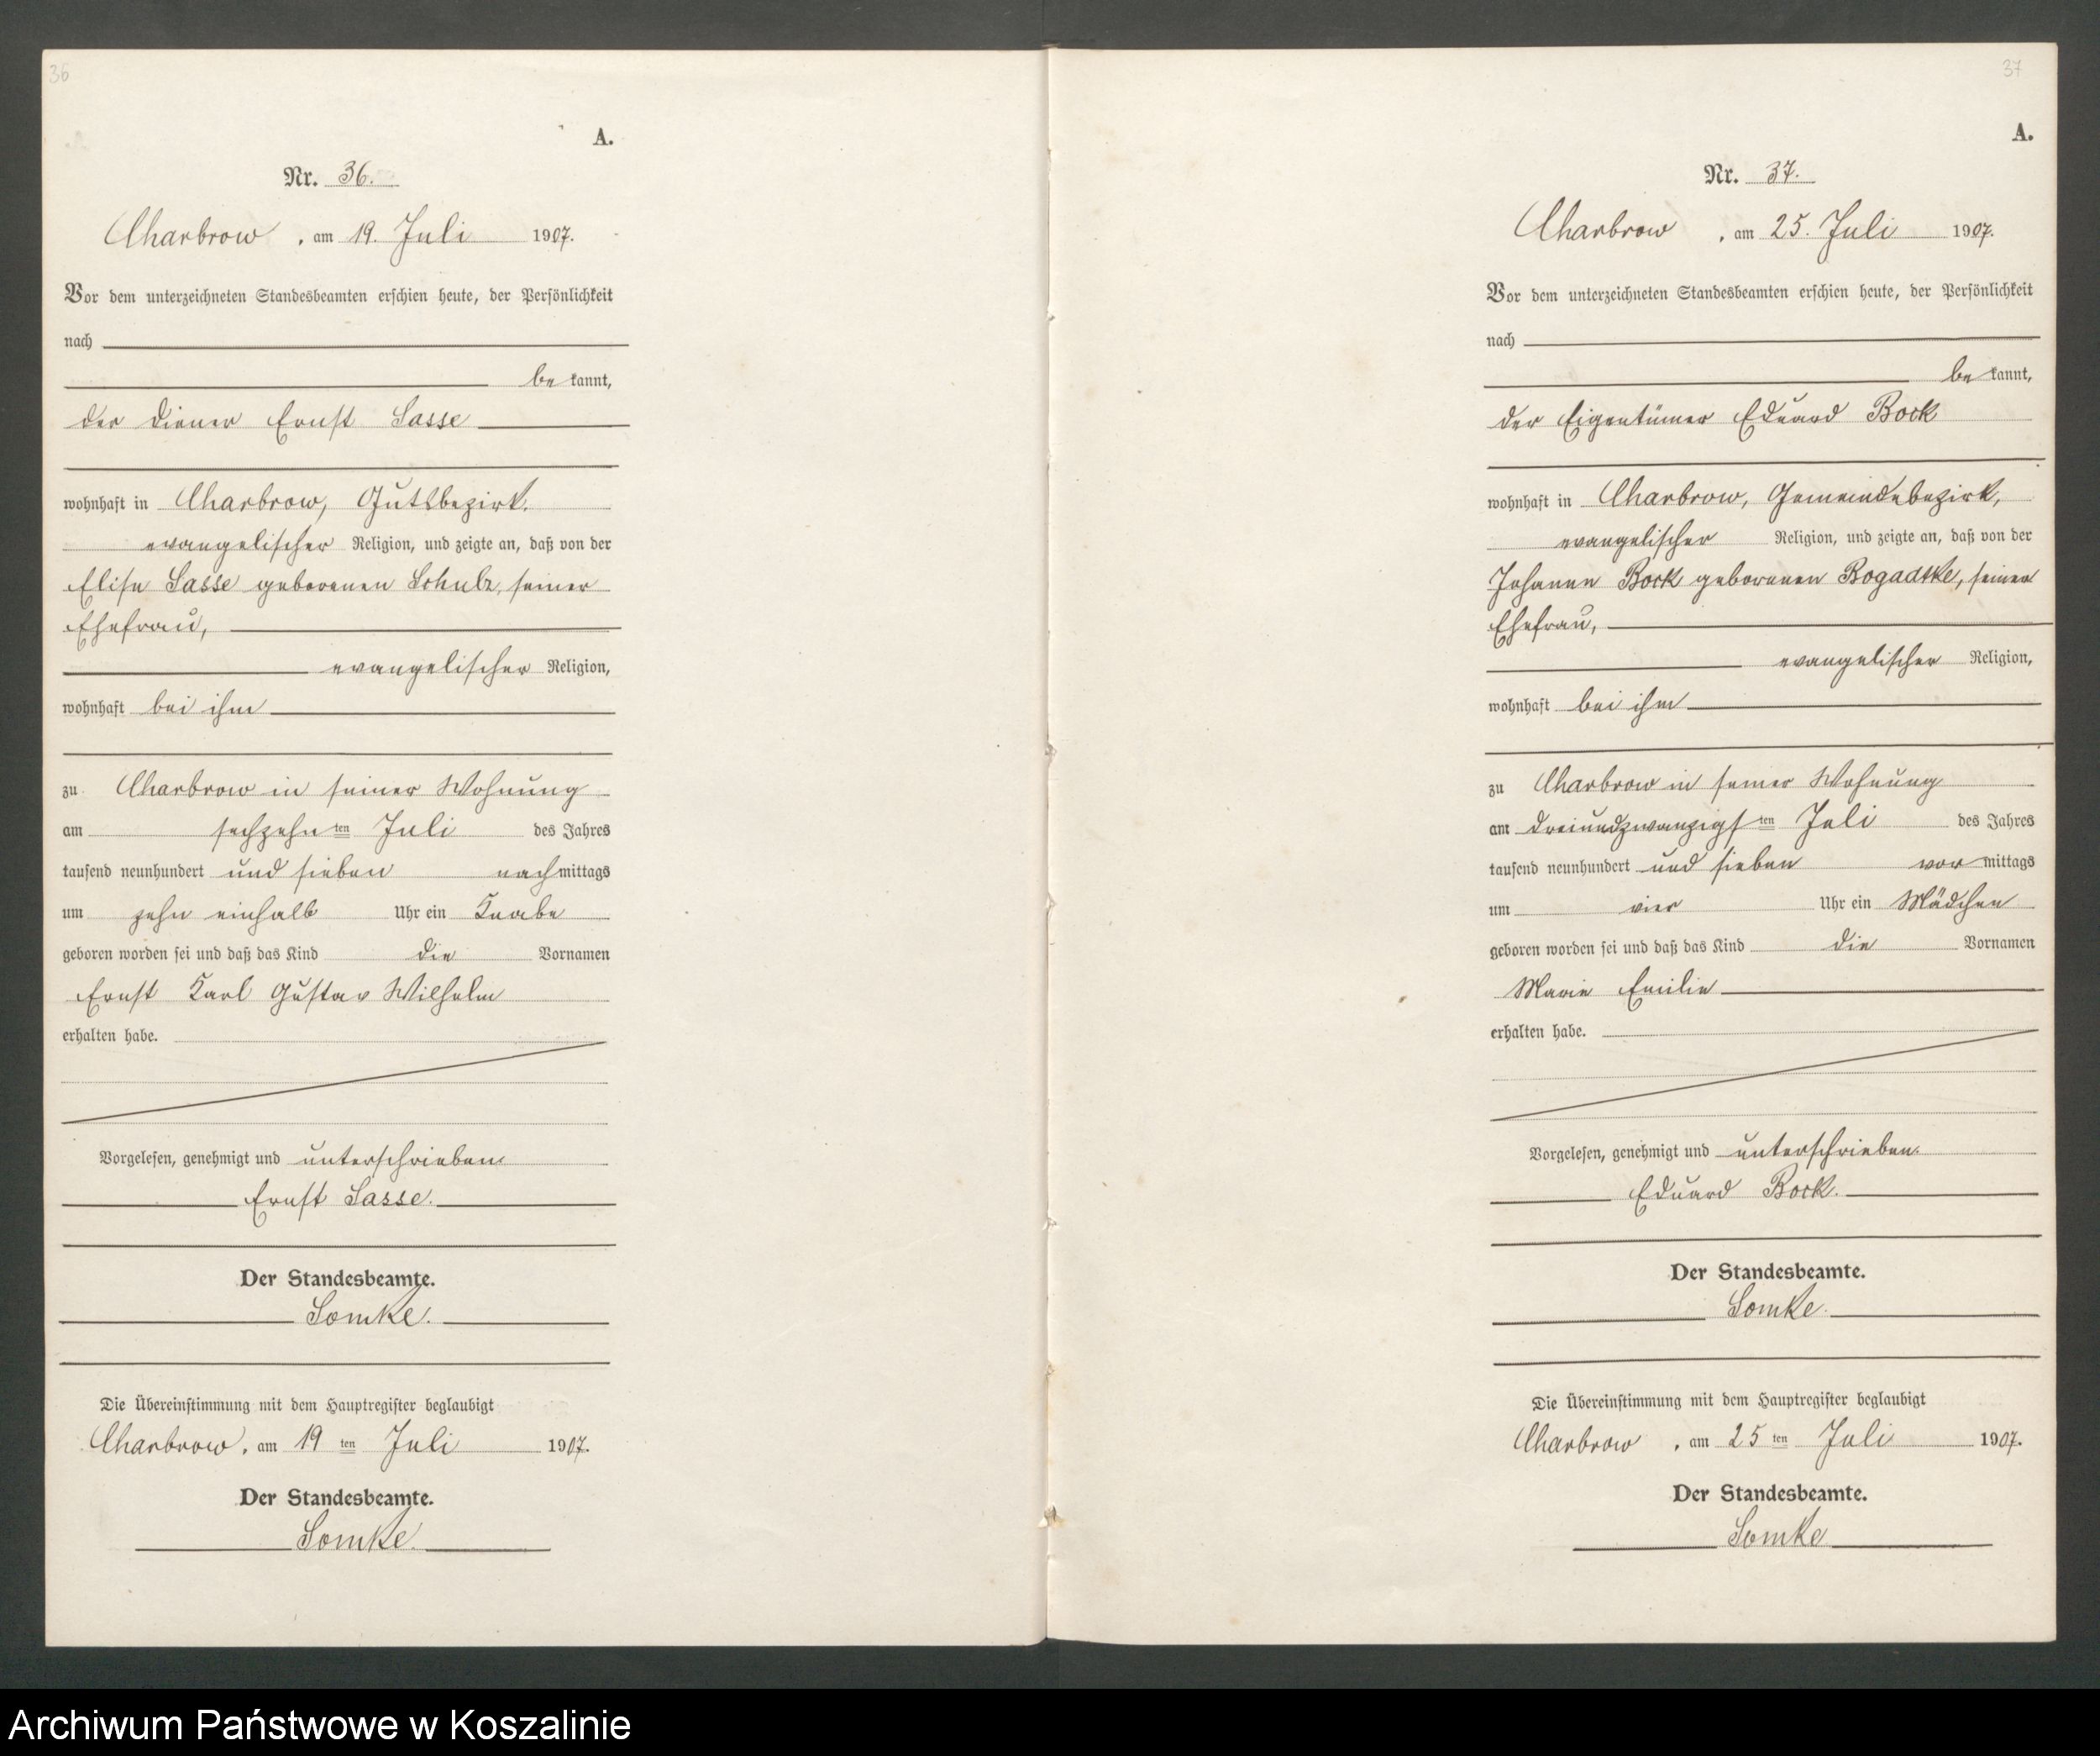 36
A.
Nr. 36.
Charbrow, am 19. Juli 1907.
Vor dem unterzeichneten Standesbeamten erschien heute, der Persönlichkeit
nach
be kannt,
der Diener Ernst Sasse
wohnhaft in Charbrow, Gutsbezirk.
evangelischer Religion, und zeigte an, daß von der
Elise Sasse geborenen Schulz, seiner
Ehefrau,
evangelischer Religion,
wohnhaft bei ihm
zu Charbrow in seiner Wohnung
am sechzehnten Juli des Jahres
tausend neunhundert und sieben nachmittags
um zehn einhalb Uhr ein Knabe
geboren worden sei und daß das Kind die Vornamen
Ernst Karl Gustav Wilhelm
erhalten habe.
Vorgelesen, genehmigt und unterschrieben.
Ernst Sasse.
Der Standesbeamte.
Somke.
Die Übereinstimmung mit dem Hauptregister beglaubigt
Charbrow, am 19 ten Juli 1907.
Der Standesbeamte.
Somke.
37
A.
Nr. 37.
Charbrow, am 25. Juli 1907.
Vor dem unterzeichneten Standesbeamten erschien heute, der Persönlichkeit
nach
be kannt,
der Eigentümer Eduard Bock
wohnhaft in Charbrow, Gemeindebezirk,
evangelischer Religion, und zeigte an, daß von der
Johanne Bock geborenen Rogadtke, seiner
Ehefrau,
evangelischer Religion,
wohnhaft bei ihm
zu Charbrow in seiner Wohnung
am dreiundzwanzigsten Juli des Jahres
tausend neunhundert und sieben vormittags
um vier Uhr ein Mädchen
geboren worden sei und daß das Kind die Vornamen
Marie Emilie
erhalten habe.
Vorgelesen, genehmigt und unterschrieben.
Eduard Bock.
Der Standesbeamte.
Somke.
Die Übereinstimmung mit dem Hauptregister beglaubigt
Charbrow, am 25 ten Juli 1907.
Der Standesbeamte.
Somke
Archiwum Państwowe w Koszalinie